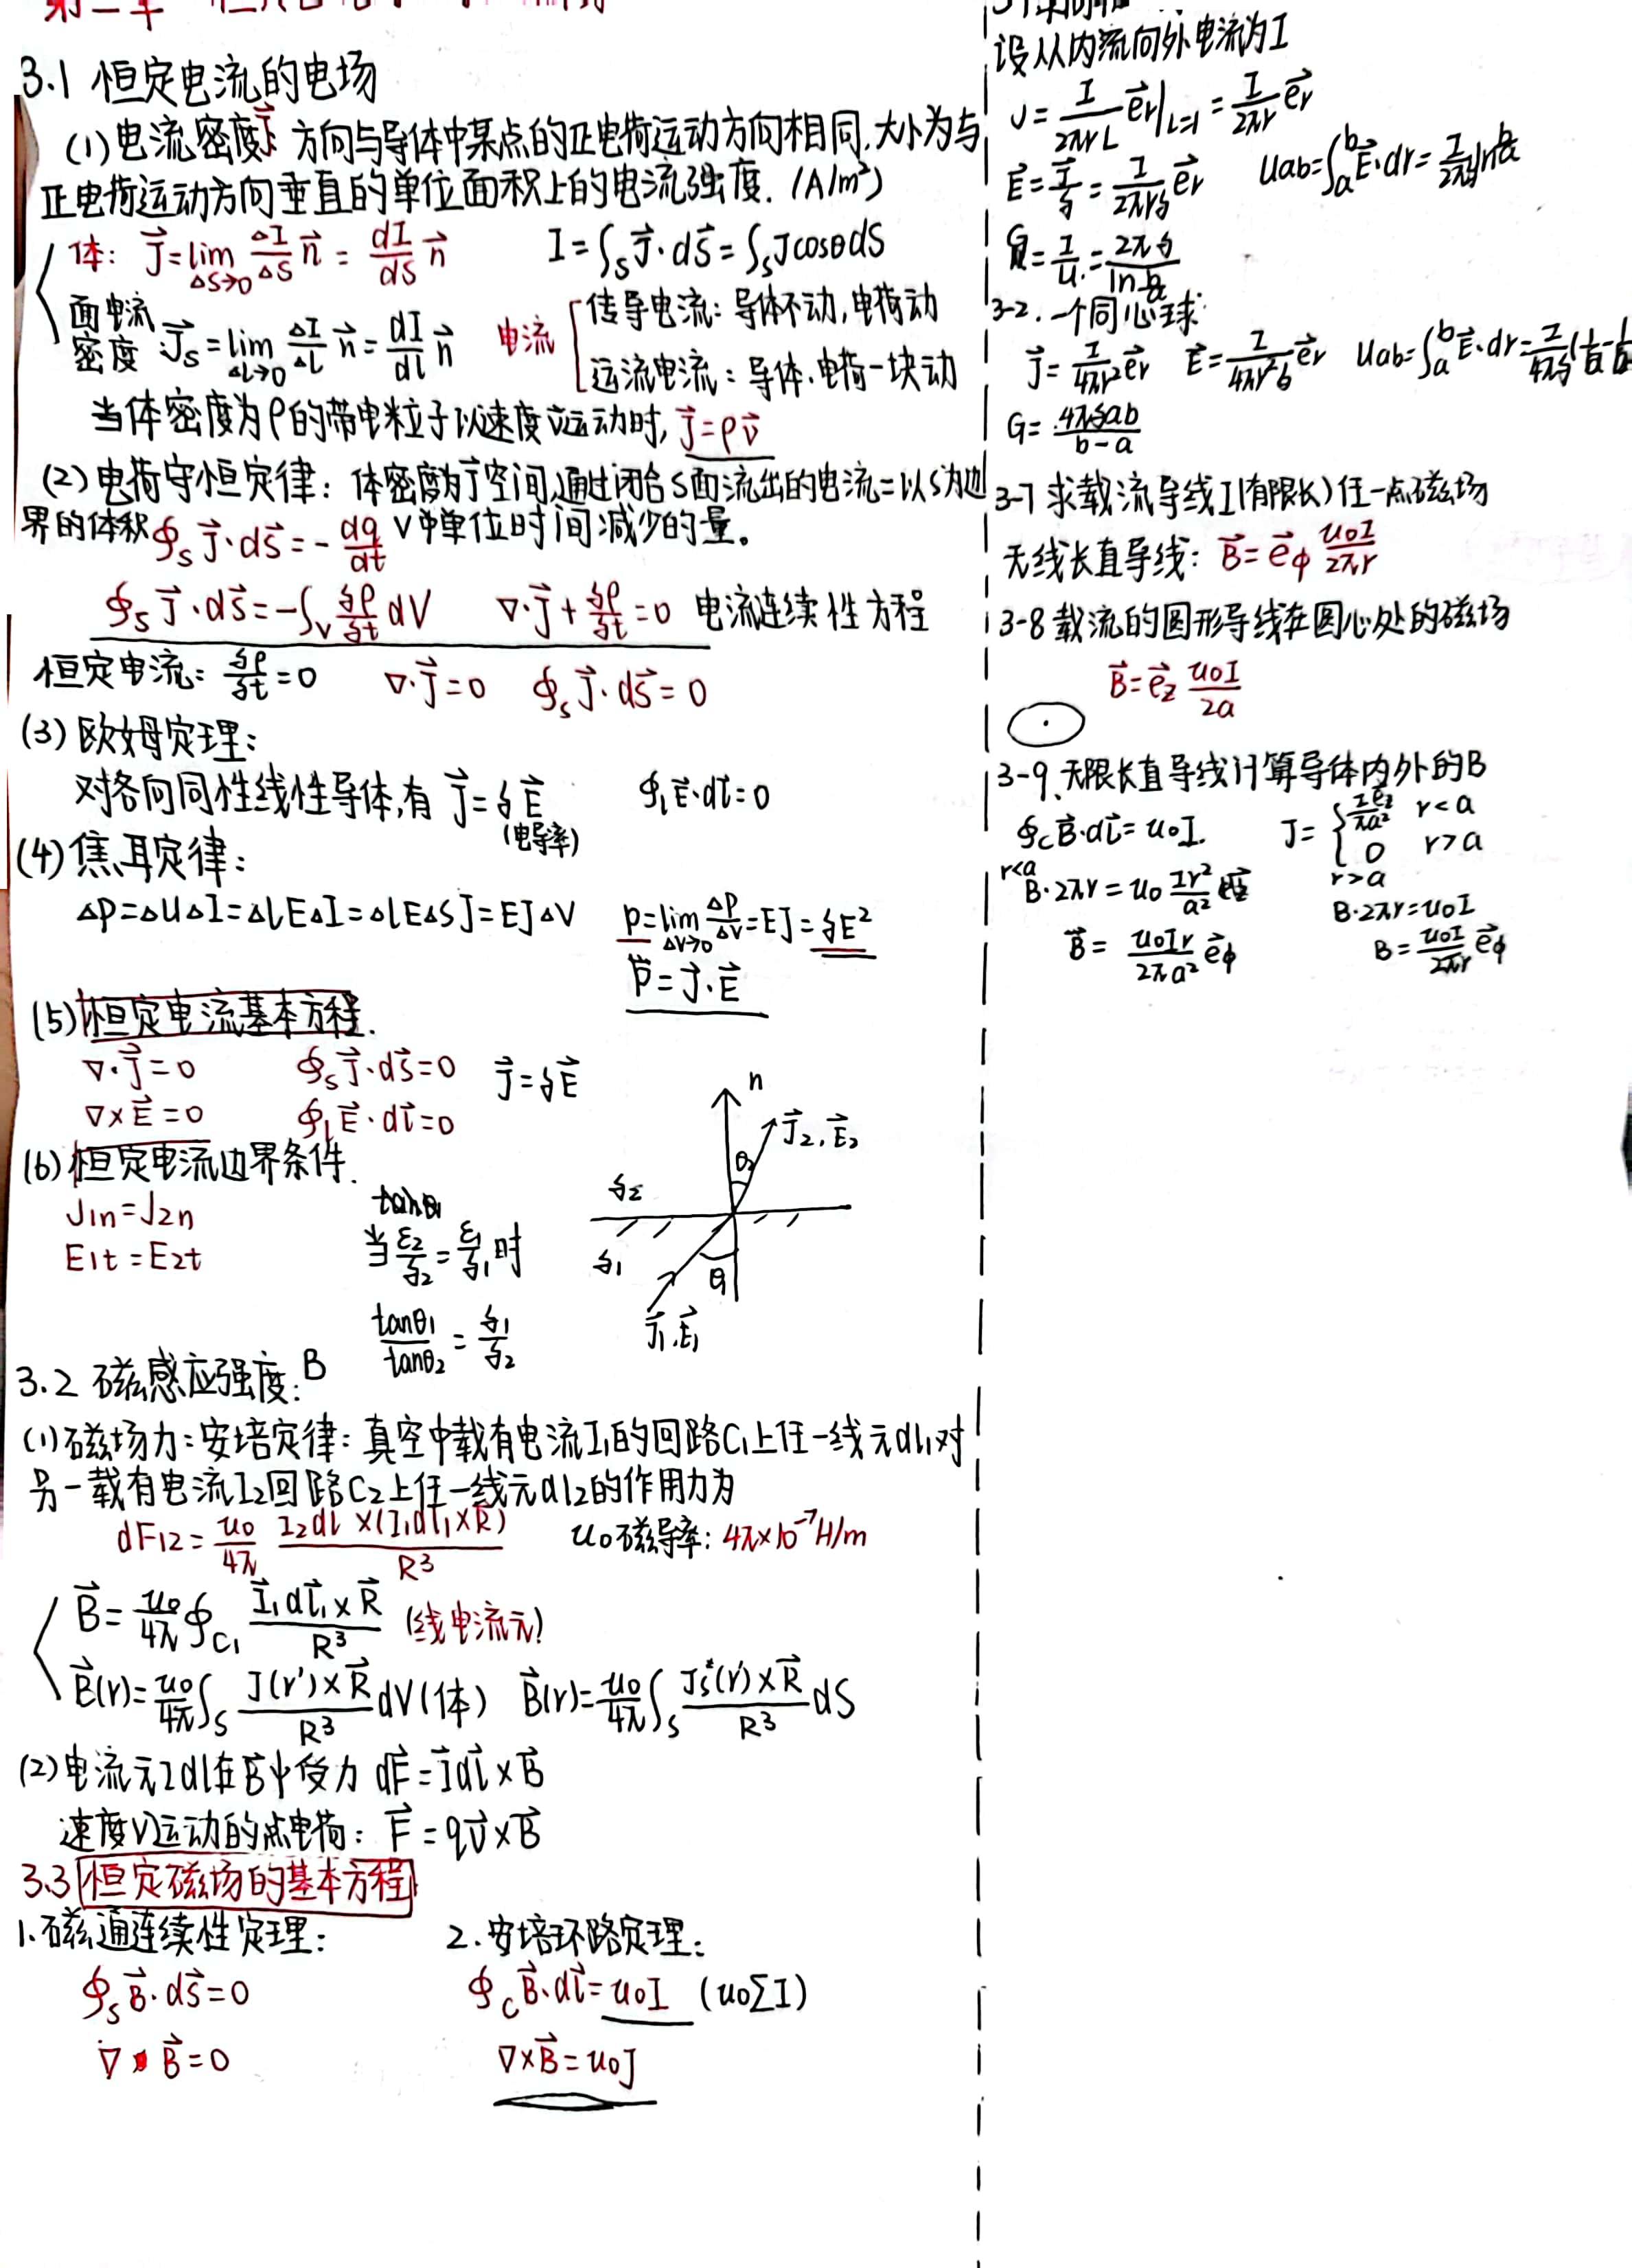 3.1 恒定电流的电场
(1) 电流密度J⃗: 方向与导体中某点的正电荷运动方向相同,大小为与
正电荷运动方向垂直的单位面积上的电流强度. (A/m²)
体: J⃗=lim ΔS→0 ΔI/ΔS n⃗ = dI/dS n⃗    I=∫s J⃗·dS⃗=∫s Jcosθ dS
面电流密度: J⃗s=lim Δl→0 ΔI/Δl n⃗ = dI/dl n⃗
电流
传导电流: 导体不动,电荷动
运流电流: 导体.电荷一块动
当体密度为ρ的带电粒子以速度v运动时, J⃗=ρv⃗
(2) 电荷守恒定律: 体密度为J⃗空间,通过闭合S面流出的电流=以S为边
界的体积 ∮s J⃗·dS⃗=-dq/dt V中单位时间减少的量。
∮s J⃗·dS⃗=-∫v ∂ρ/∂t dV    ∇·J⃗+∂ρ/∂t=0 电流连续性方程
恒定电流: ∂ρ/∂t=0    ∇·J⃗=0    ∮s J⃗·dS⃗=0
(3) 欧姆定理:
对各向同性线性导体,有 J⃗=δE⃗    ∮l E⃗·dl⃗=0
(电导率)
(4) 焦耳定律:
ΔP=ΔUΔI=ΔlEΔI=ΔlEΔSJ=EJΔV    p=lim ΔV→0 ΔP/ΔV=EJ=δE²
p=J⃗·E⃗
(5) 恒定电流基本方程.
∇·J⃗=0    ∮s J⃗·dS⃗=0    J⃗=δE⃗
∇×E⃗=0    ∮l E⃗·dl⃗=0
(6) 恒定电流边界条件.
J1n=J2n
E1t=E2t
tanθ1
当 ε2/δ2=ε1/δ1 时
tanθ1/tanθ2=δ1/δ2
n
J⃗2,E⃗2
θ2
δ2
δ1
θ1
J⃗1,E⃗1
3.2 磁感应强度: B
(1) 磁场力: 安培定律: 真空中载有电流I1的回路C1上任一线元dl1对
另一载有电流I2回路C2上任一线元dl2的作用力为
dF12=u0/4π I2dl×(I1dl⃗1×R⃗)/R³    u0磁导率: 4π×10⁻⁷H/m
B⃗=u0/4π ∮C1 I⃗1dl⃗1×R⃗/R³ (线电流元)
B⃗(r)=u0/4π ∫s J(r')×R⃗/R³ dV (体)    B⃗(r)=u0/4π ∫s Js(r')×R⃗/R³ dS
(2) 电流元Idl在B⃗中受力 dF⃗=I⃗dl⃗×B⃗
速度V运动的点电荷: F⃗=qv⃗×B⃗
3.3 恒定磁场的基本方程
1.磁通连续性定理:    2.安培环路定理:
∮s B⃗·dS⃗=0    ∮c B⃗·dl⃗=u0I (u0∑I)
∇·B⃗=0    ∇×B⃗=u0J
设从内流向外电流为I
J=I/2πrL e⃗r|L=1=I/2πr e⃗r
E⃗=J⃗/δ=I/2πrδ e⃗r    Uab=∫a^b E⃗·dr=I/2πδ ln b/a
G=I/U=2πδ/ln b/a
3-2. 一个同心球:
J⃗=I/4πr² e⃗r    E⃗=I/4πr²δ e⃗r    Uab=∫a^b E⃗·dr=I/4πδ(1/a-1/b
G=4πδab/b-a
3-7 求载流导线I(有限长)任一点磁场
无线长直导线: B⃗=e⃗φ u0I/2πr
3-8 载流的圆形导线在圆心处的磁场
B⃗=e⃗z u0I/2a
3-9、无限长直导线计算导体内外的B
∮c B⃗·dl⃗=u0I.    J={I e⃗z/πa² r<a
0 r>a
r<a    r>a
B·2πr=u0 Ir²/a²    B·2πr=u0I
B⃗=u0Ir/2πa² e⃗φ    B=u0I/2πr e⃗φ